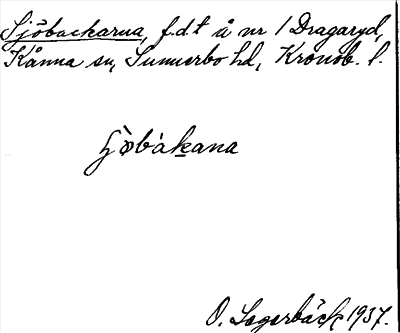 Sjöbackarna, f.d.t å nr 1 Dragaryd,
Kånna sn, Sunnerbo hd, Kronob. l.
ʃö̀bákana
O. Lagerbäck 1937.